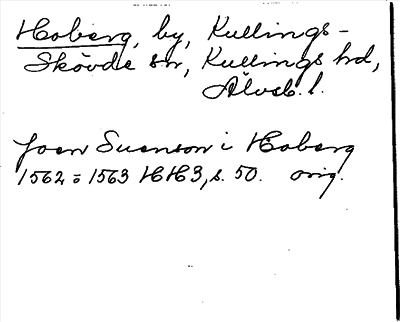 Hoberg, by, Kullings-
Skövde sn, Kullings hd,
Älvsb. l.
Joen Suenson i Hoberg
1562 = 1563 HH3, s. 50. orig.